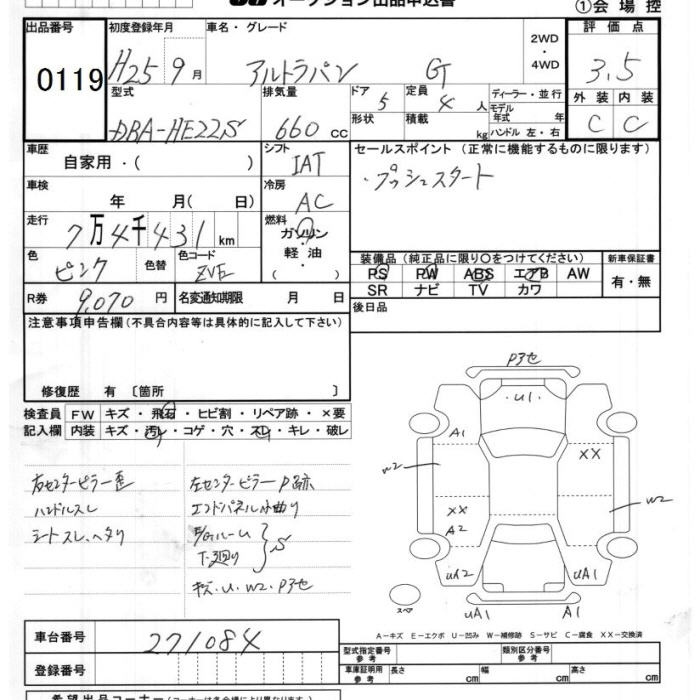 オークション出品申込書
①会場控
出品番号 初度登録年月 車名・グレード 2WD・4WD 評価点
0119 H25 9月 アルトラパン GT 3.5
型式 排気量 ドア 5 定員 4人 ディーラー・並行 外装 内装
DBA-HE22S 660 cc 形状 積載 kg モデル年式 年 ハンドル 左・右 C C
車歴 シフト セールスポイント (正常に機能するものに限ります)
自家用・( ) IAT ・プッシュスタート
車検 冷房
年 月( 日) AC
走行 燃料
7万4千431km ガソリン
軽油
・( )
色 色替 色コード 装備品 (純正品に限り〇をつけてください) 新車保証書
ピンク ZVE PS PW ABS エアB AW 有・無
SR ナビ TV カワ
R券 9,070円 名変通知期限 月 日 後日品
注意事項申告欄(不具合内容等は具体的に記入して下さい)
修復歴 有 〔箇所 〕
検査員 FW キズ・飛石・ヒビ割・リペア跡・×要
記入欄 内装 キズ・汚レ・コゲ・穴・スレ・キレ・破レ
右センターピラー歪 左センターピラーP跡
ハンドルスレ エンドパネル小曲り
シートスレ、ヘタリ E/Gルーム
下廻り S
キズ・U・W2・P3セ
P3セ
・U1・
A1 XX
W2 W2
XX
A2
UA2 UA1
スペア UA1 A1
A-キズ E-エクボ U-凹み W-補修跡 S-サビ C-腐食 XX-交換済
車台番号 271084
型式指定番号 参考 類別区分番号 参考
登録番号 車庫証明用 参考 長さ cm 幅 cm 高さ cm
希望出品コーナー(コーナーは各会場により異なります)